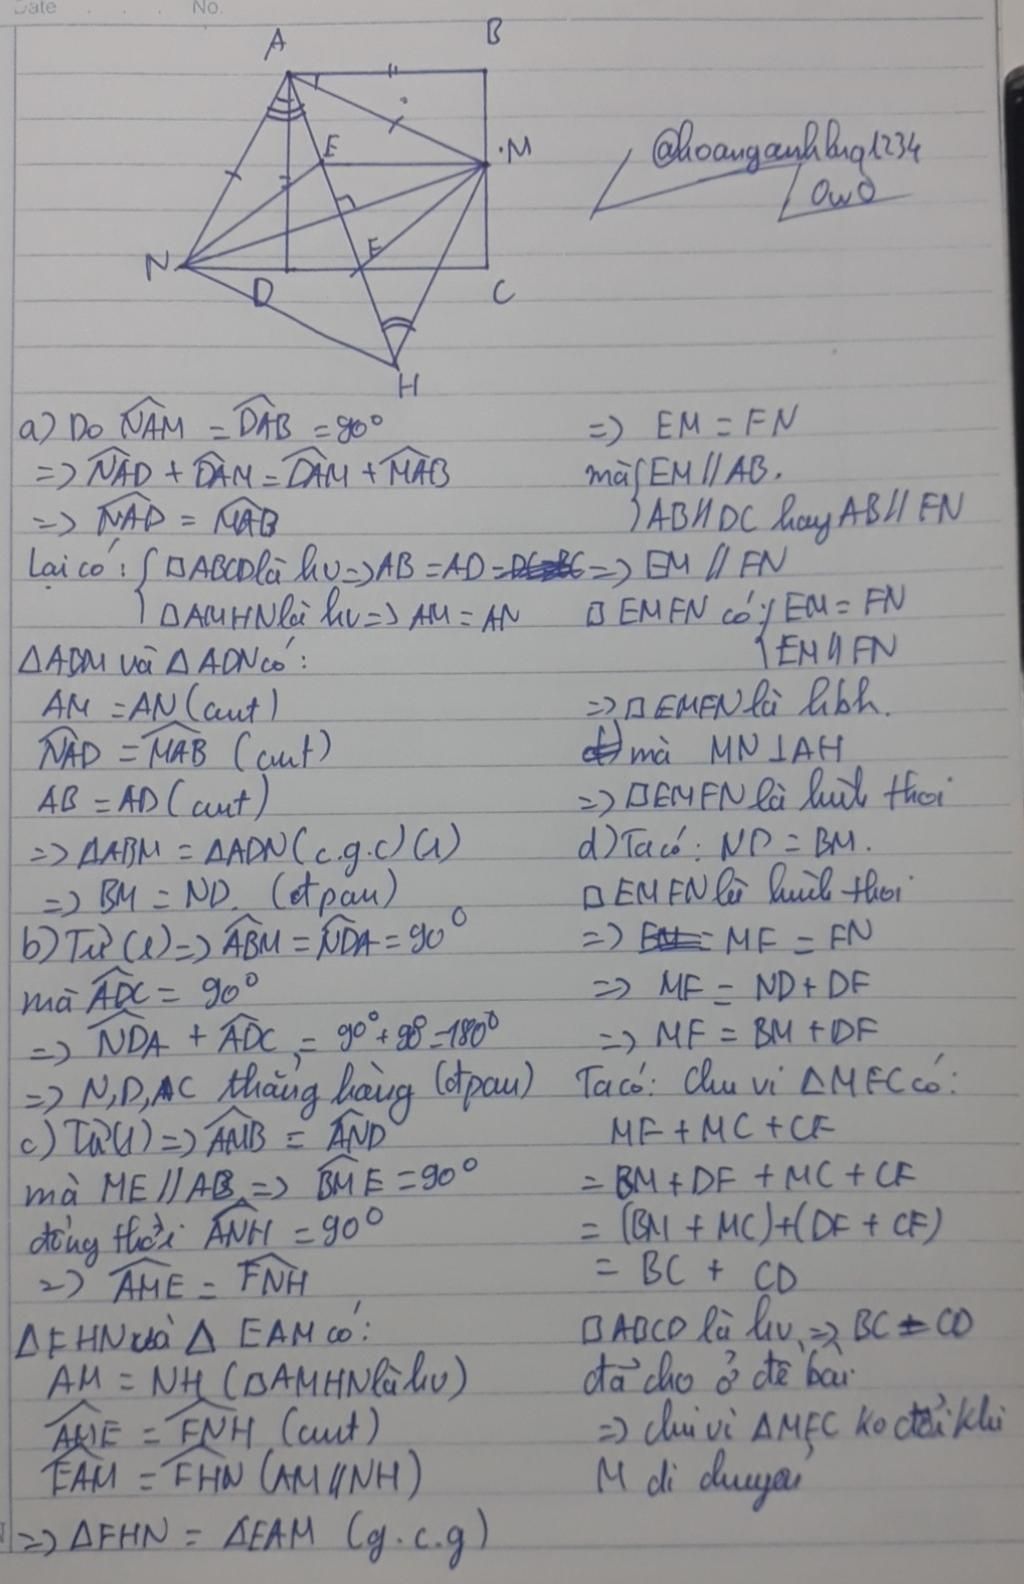 Date No.
A
B
E
M
@hoanganhhng1234
OwO
N
D
F
C
H
a) Do NAM = DAB = 90°
=> NAD + DAM = DAM + MAB
=> NAD = MAB
Lại có: { □ABCD là hv => AB = AD
□AMHN là hv => AM = AN
ΔABM và ΔADN có:
AM = AN (cmt)
NAD = MAB (cmt)
AB = AD (cmt)
=> ΔABM = ΔADN (c.g.c) (1)
=> BM = ND. (đpcm)
b) Từ (1) => ABM = NDA = 90°
mà ADC = 90°
=> NDA + ADC = 90° + 90° = 180°
=> N, D, C thẳng hàng (đpcm)
c) Từ (1) => AMB = AND
mà ME // AB => BME = 90°
đồng thời ANH = 90°
=> AME = FNH
ΔFHN và Δ EAM có:
AM = NH (□AMHN là hv)
AME = FNH (cmt)
EAM = FHN (AM // NH)
=> ΔFHN = ΔEAM (g.c.g)
=> EM = FN
mà { EM // AB.
AB // DC hay AB // FN
=> EM // FN
□ EMFN có { EM = FN
EM // FN
=> □ EMFN là hbh.
mà MN ⊥ AH
=> □EMFN là hình thoi
d) Ta có: ND = BM.
□EMFN là hình thoi
=> MF = FN
=> MF = ND + DF
=> MF = BM + DF
Ta có: Chu vi ΔMFC có:
MF + MC + CF
= BM + DF + MC + CF
= (BM + MC) + (DF + CF)
= BC + CD
□ABCD là hv => BC = CD
đã cho ở đề bài
=> chu vi ΔMFC ko đổi khi
M di chuyển